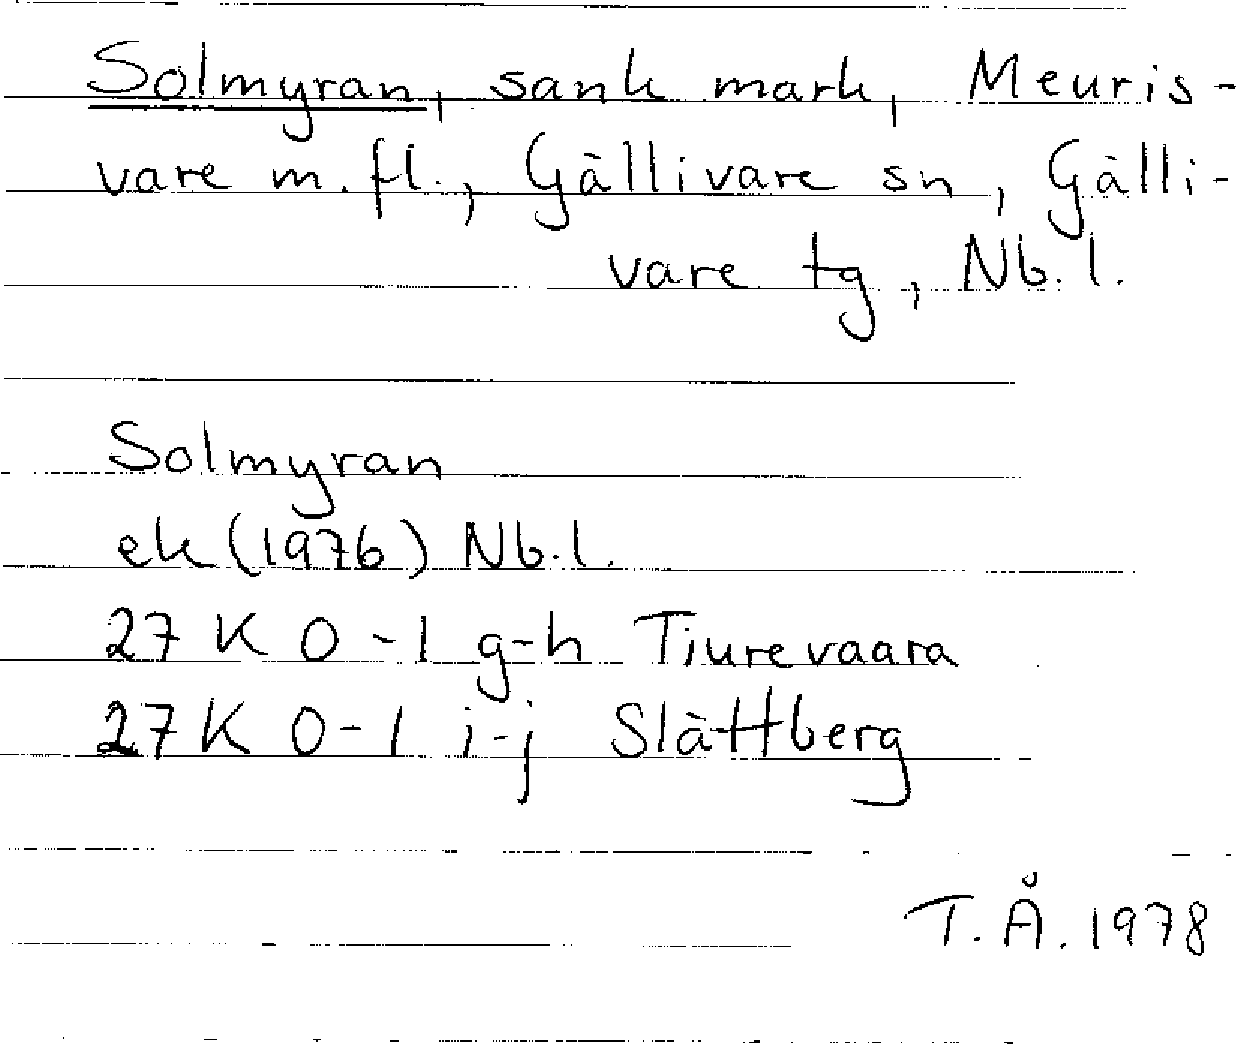 Solmyran, sank mark, Meuris-
vare m. fl., Gällivare sn, Gälli-
vare tg, Nb. l.
Solmyran
ek (1976) Nb. l.
27 K 0-1 g-h Tiurevaara
27 K 0-1 i-j Slättberg
T. Å. 1978